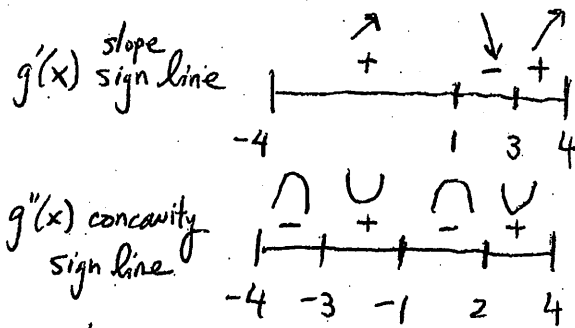 slope
g'(x) sign line
+ − +
-4 1 3 4
g''(x) concavity
sign line
− + − +
-4 -3 -1 2 4